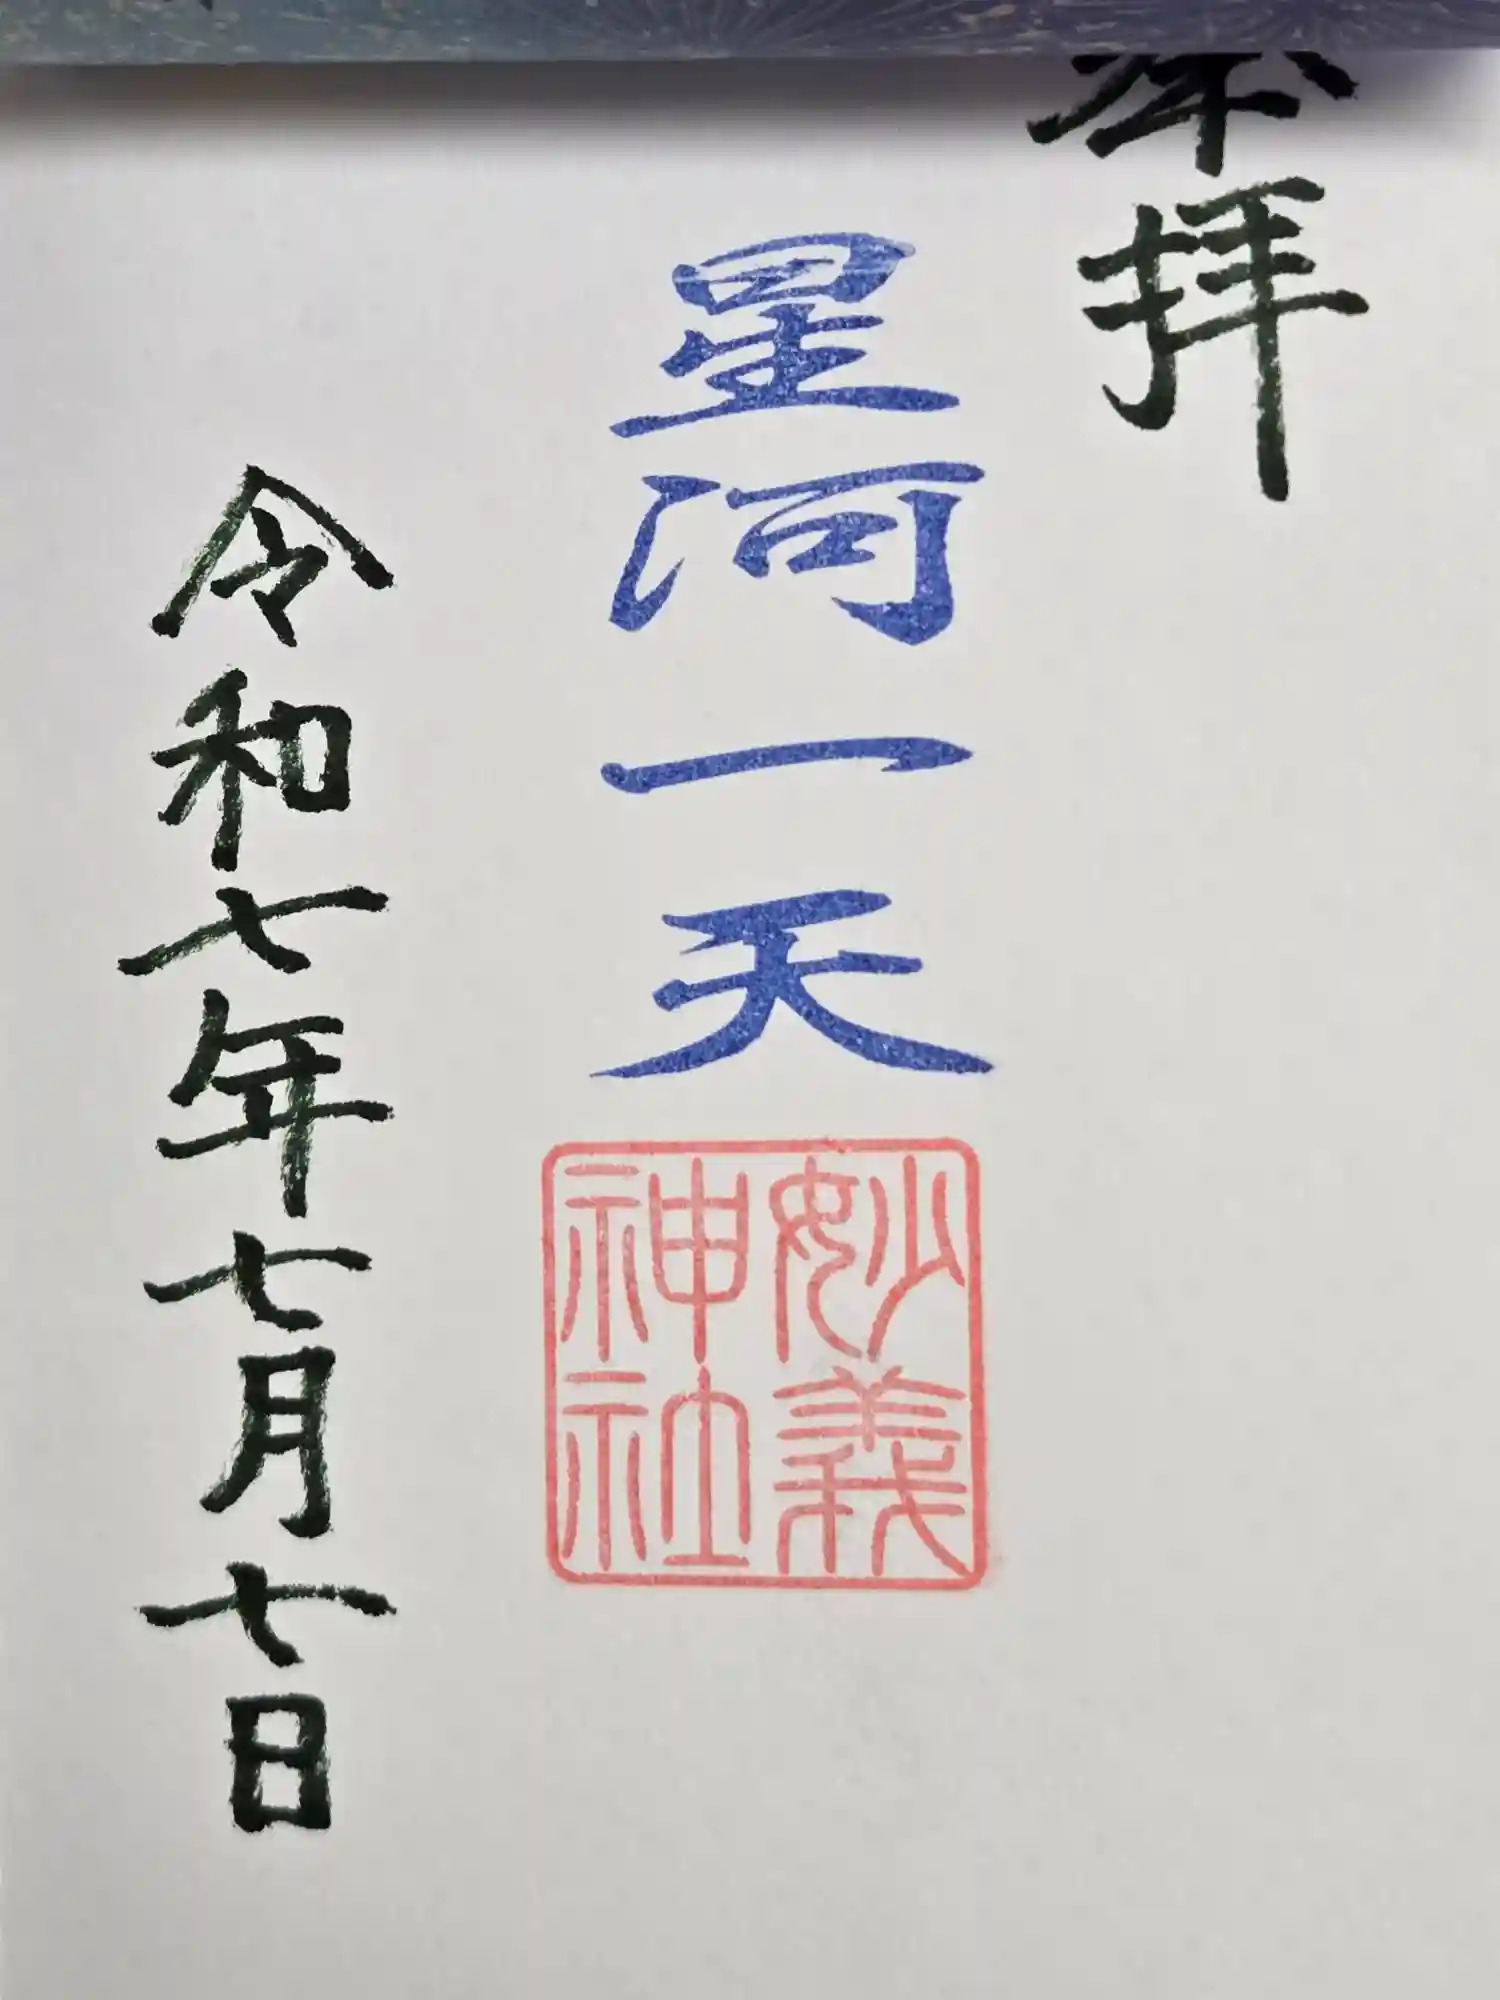 奉拝
星河一天
妙義
神社
令和七年七月七日